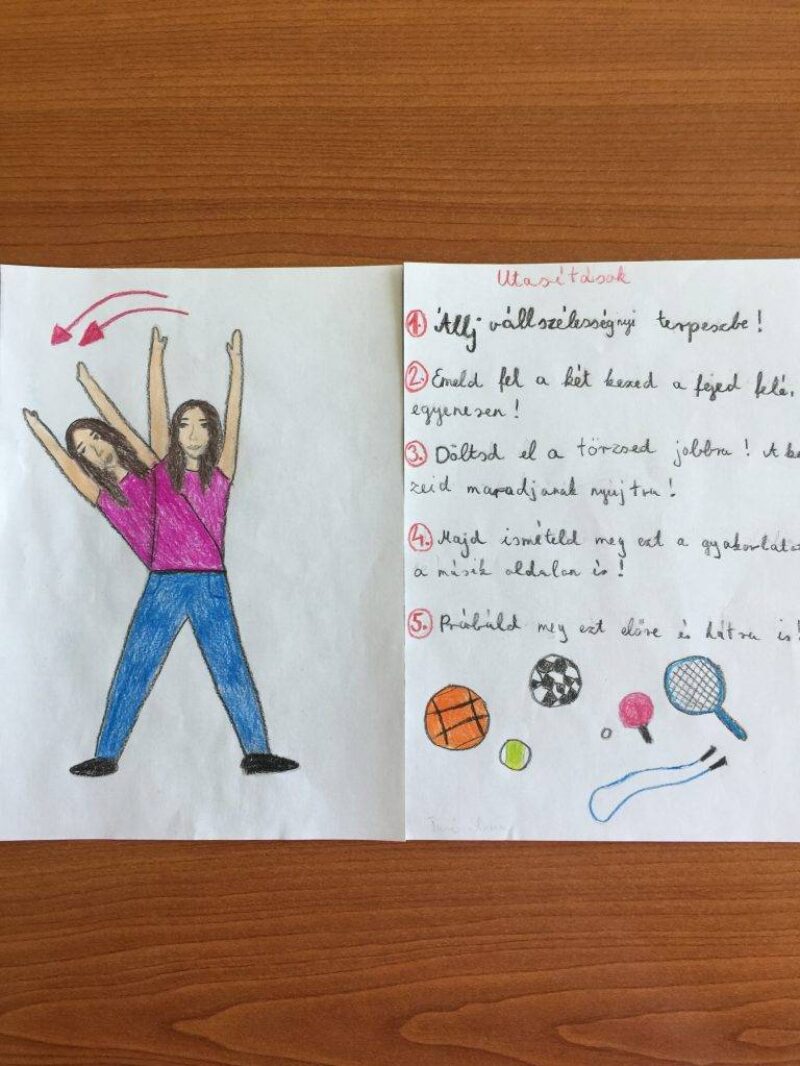 Utasítások
1. Állj vállszélességnyi terpeszbe!
2. Emeld fel a két kezed a fejed felé,
egyenesen!
3. Döltsd el a törzsed jobbra! A ke
zeid maradjanak nyújtva!
4. Majd ismételd meg ezt a gyakorlatot
a másik oldalon is!
5. Próbáld meg ezt előre és hátra is!